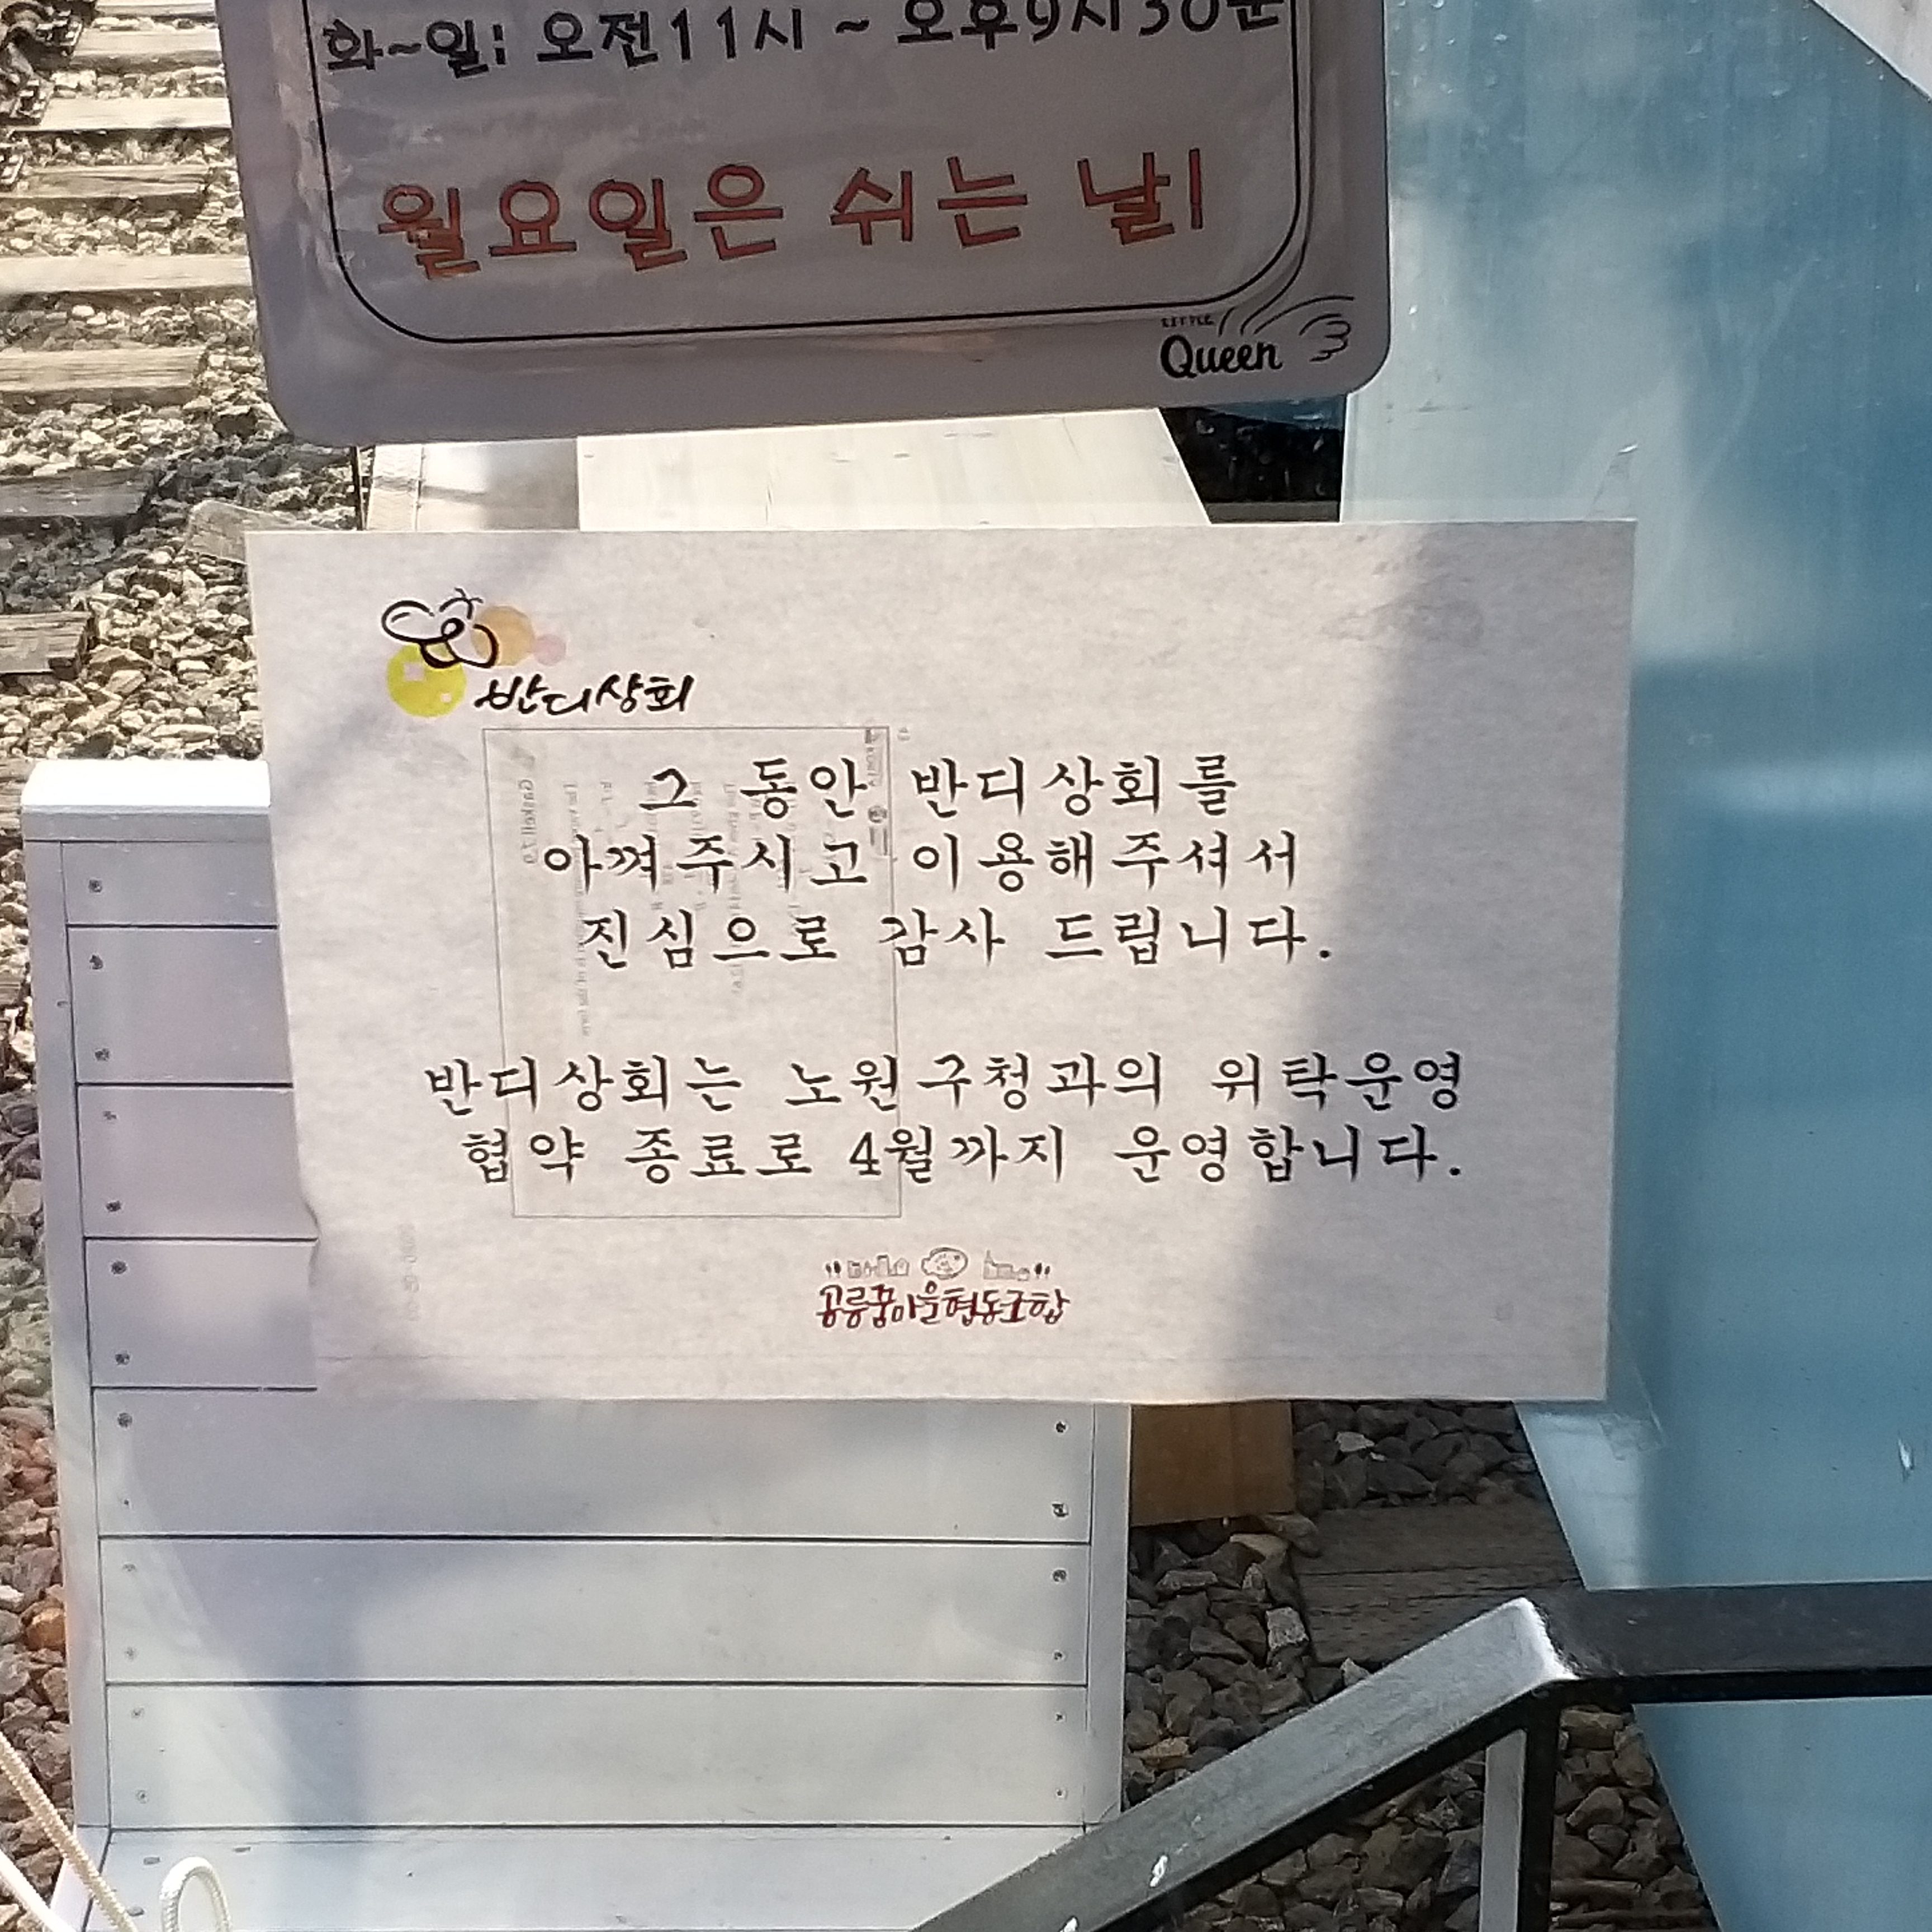 화~일: 오전11시 ~ 오후9시30분
월요일은 쉬는 날!
LITTLE
Queen
반디상회
그 동안 반디상회를
아껴주시고 이용해주셔서
진심으로 감사 드립니다.
반디상회는 노원구청과의 위탁운영
협약 종료로 4월까지 운영합니다.
공릉꿈마을협동조합